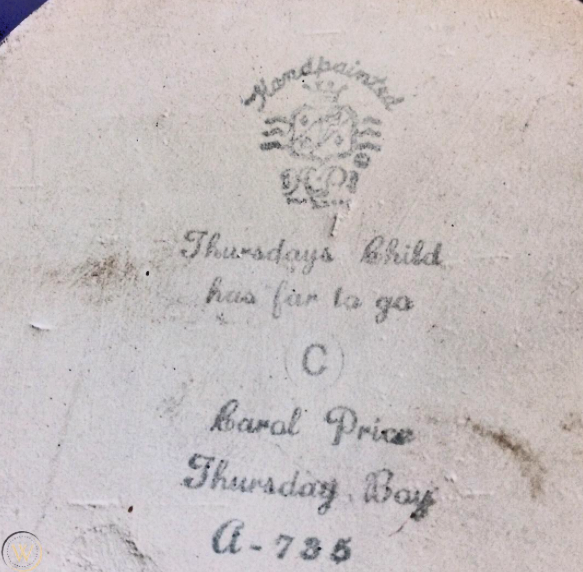 Handpainted
A.P.
Thursdays Child
has far to go
C
Carol Price
Thursday Boy
A-735
W